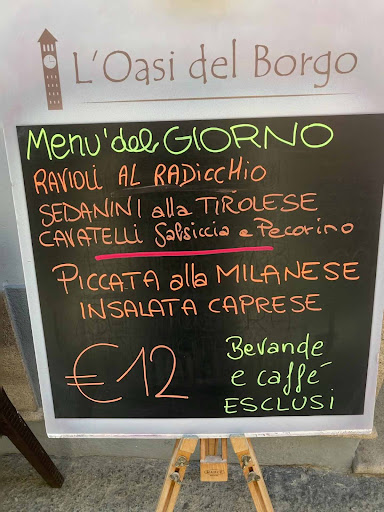 L'Oasi del Borgo
Menu' del GIORNO
RAVIOLI AL RADICCHIO
SEDANINI alla TIROLESE
CAVATELLI Salsiccia e Pecorino
PICCATA alla MILANESE
INSALATA CAPRESE
€12
Bevande
e caffé
ESCLUSI